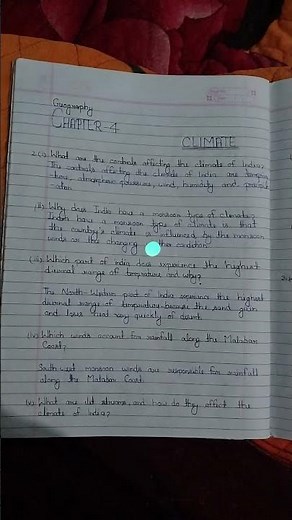 Geography
CHAPTER-4
CLIMATE
2.(i) What are the controls affecting the climate of India?
The controls affecting the climate of India are
ture, atmospheric pressure, wind, humidity and
(ii) Why does India have a monsoon type of climate?
India have a monsoon type of climate is that
the country's climate is influenced by the monsoon
winds on the changing condition.
(iii) Which part of India does experience the highest
diurnal range of temperature and why?
The North-Western part of India experience the highest
diurnal range of temperature because the sand gain
and loses heat very quickly of desert.
(iv) Which winds account for rainfall along the Malabar
Coast?
South west monsoon winds are responsible for rainfall
along the Malabar Coast.
(v) What are Jet streams and how do they affect the
climate of India?